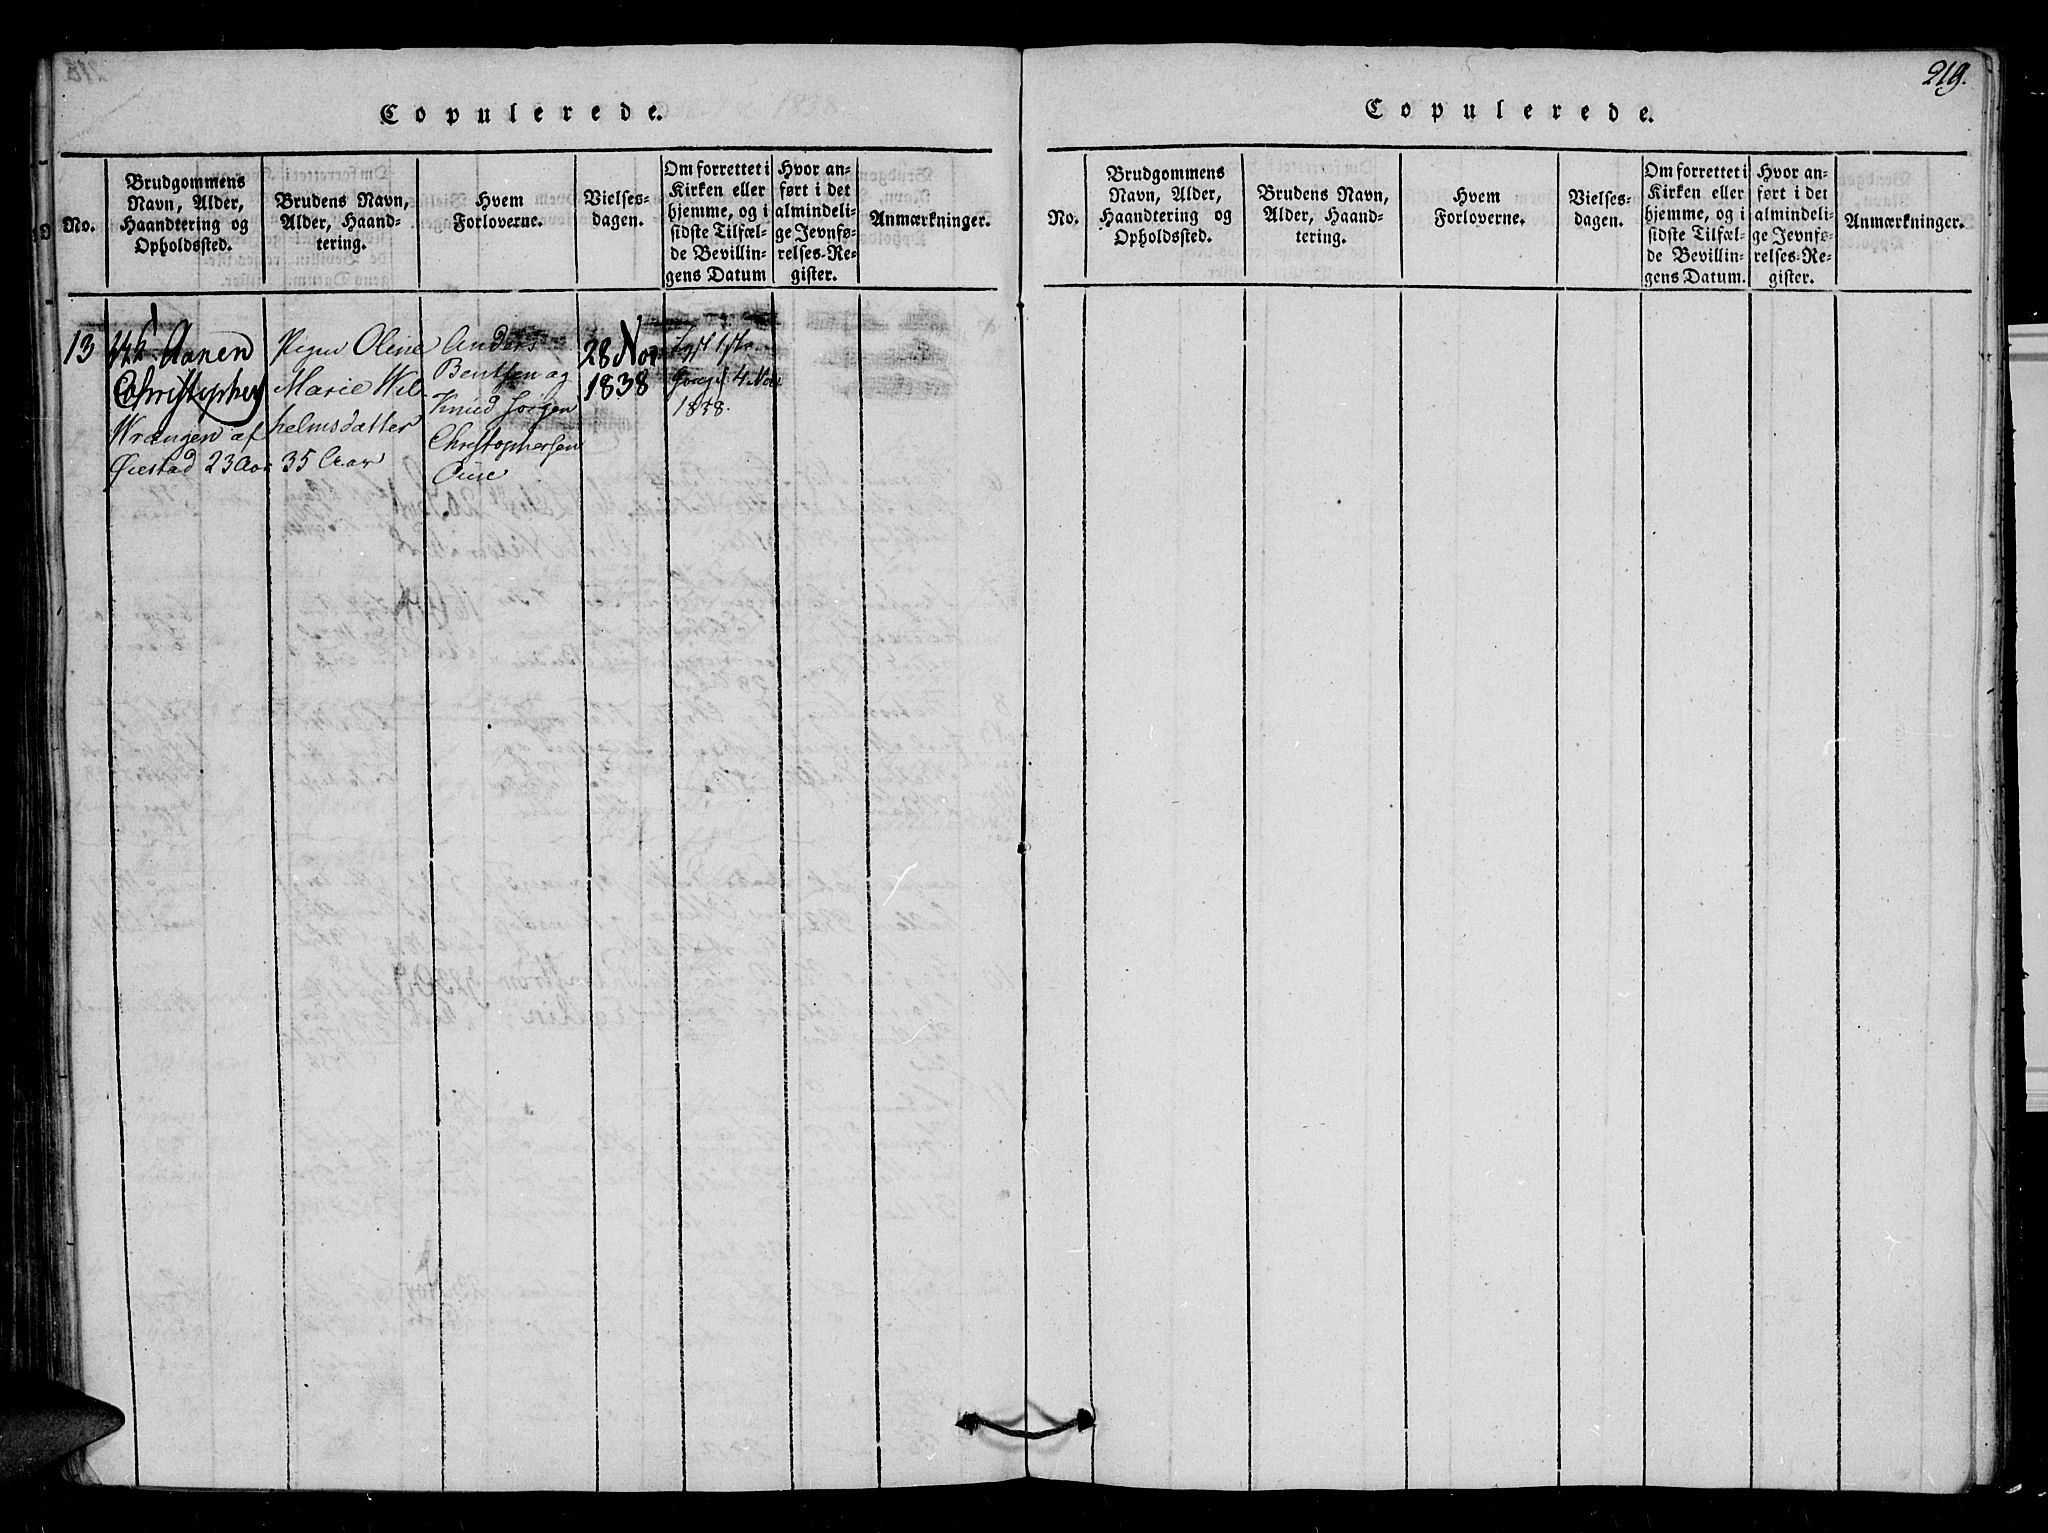 Copulerede.
No.
Brudgommens
Navn, Alder,
Haandtering og
Opholdssted.
Brudens Navn,
Alder, Haand-
tering.
Hvem
Forloverne.
Vielses-
dagen.
Om forrettet i
Kirken eller
hjemme, og i
sidste Tilfæl-
de Bevillin-
gens Datum
Hvor an-
ført i det
almindeli-
ge Jevnfø-
relses-Re-
gister.
Anmærkninger.
13
Aanen
Christopher
Wrangen af
Øiestad 23 Aar
Pigen Oline
Marie Wil
helmsdatter
35 Aar
Anders
Bentsen og
Knud Jörgen
Christophersen
28 Nov
1838
Lyst 1ste
Gang d. 4 Nov
1838.
219.
Copulerede.
No.
Brudgommens
Navn, Alder,
Haandtering og
Opholdssted.
Brudens Navn,
Alder, Haand-
tering.
Hvem
Forloverne.
Vielses-
dagen.
Om forrettet i
Kirken eller
hjemme, og i
sidste Tilfæl-
de Bevillin-
gens Datum.
Hvor an-
ført i det
almindeli-
ge Jevnfø-
relses-Re-
gister.
Anmærkninger.